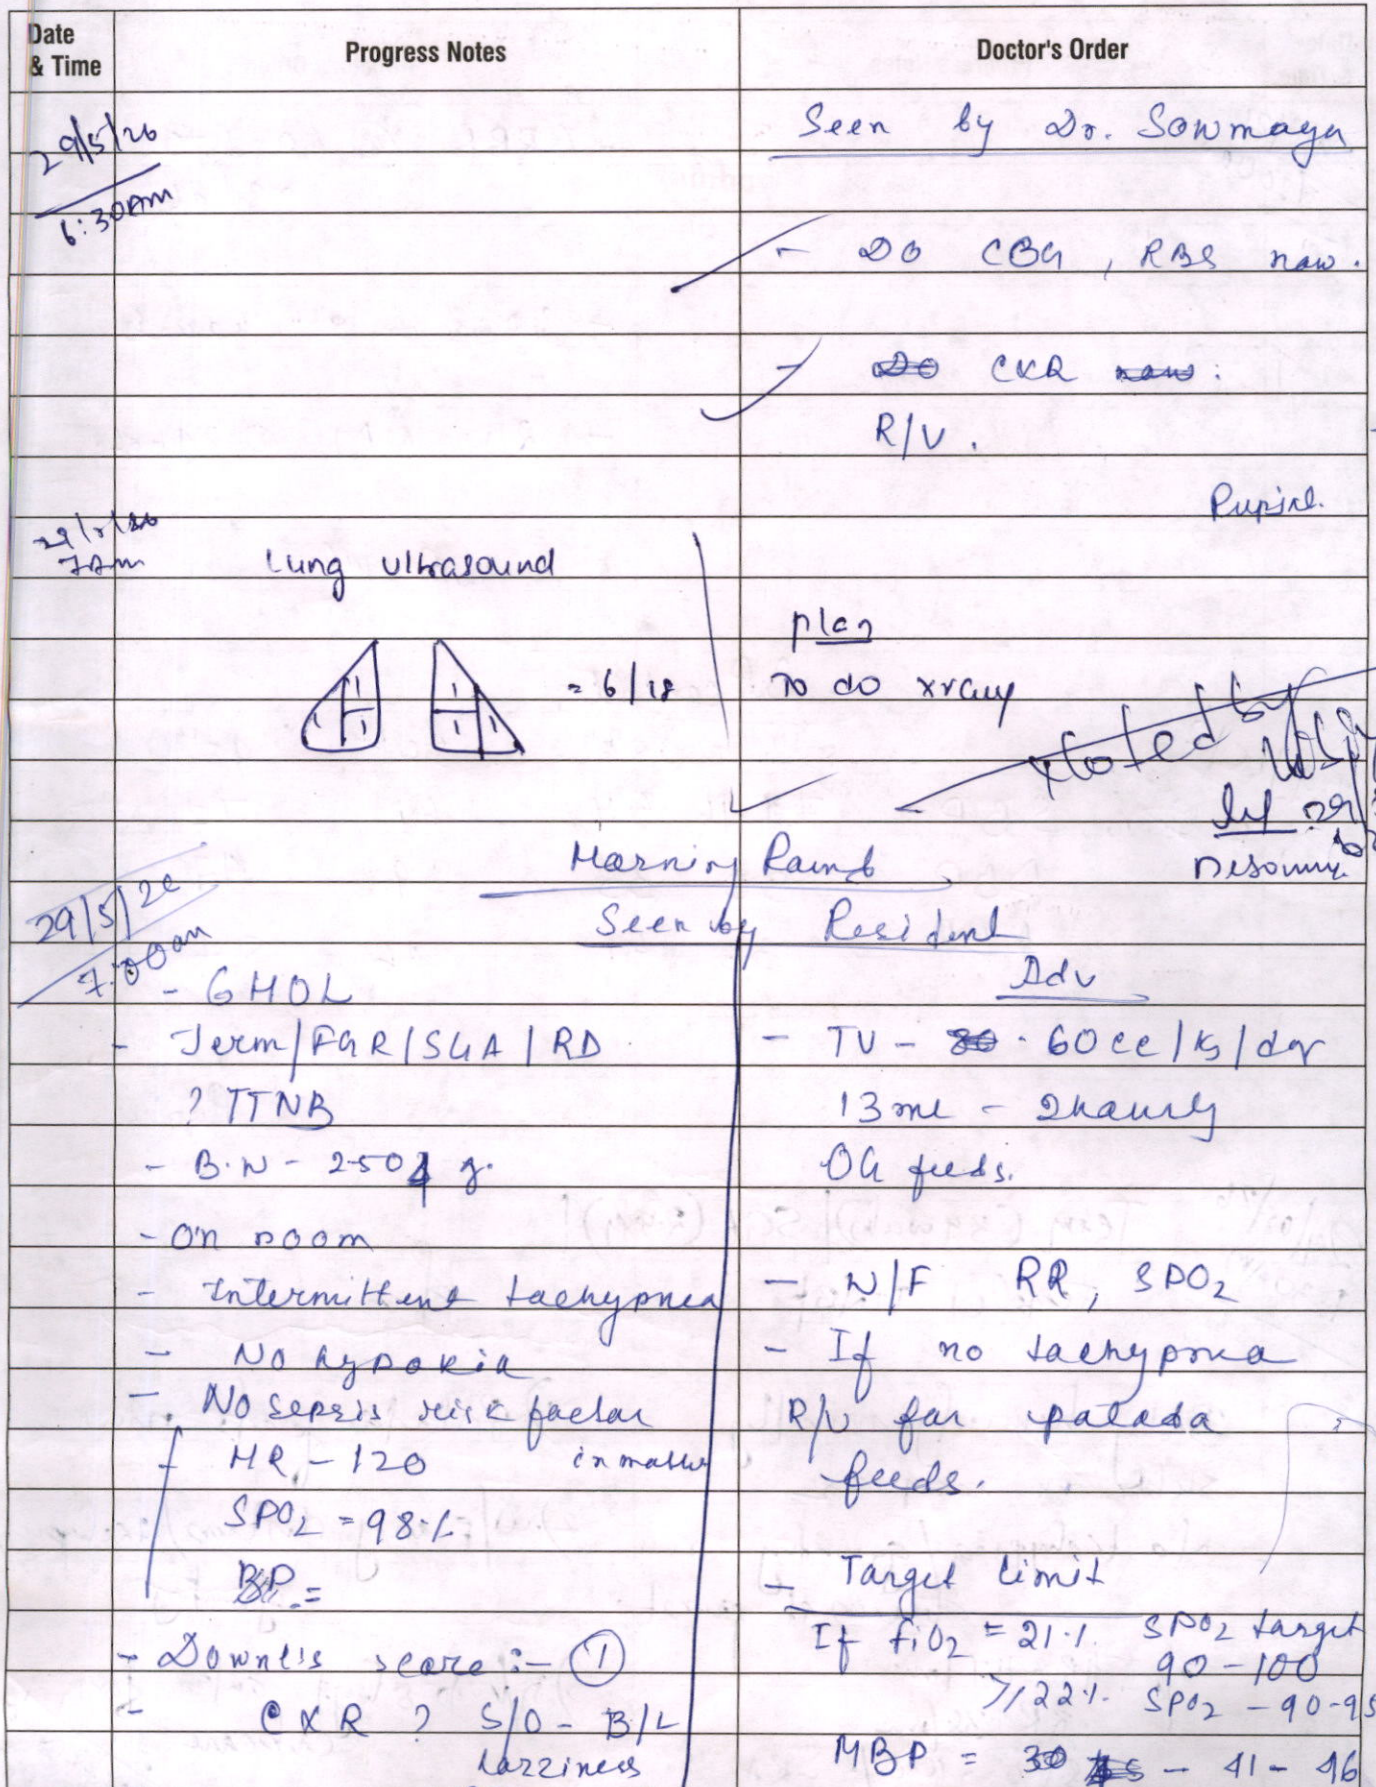 Date & Time
Progress Notes
Doctor's Order
29/5/20
6:30AM
Seen by Dr. Sowmaya
- DO CBG, RBS now.
- DO CXR now.
R/V.
7am
Lung ultrasound
= 6/18
plan
To do xray
Noted by
29/5/20
7:00am
Morning Rounds
Seen by Resident
- 6HOL
- Term/FGR/SGA/RD
? TTNB
- B.W - 2504 g.
- On room
- Intermittent tachypnea
- No hypoxia
- No sepsis risk factor
in mother
- HR - 120
SPO2 = 98%
BP =
- Downe's score :- 1
- CXR ? S/O - B/L
hazziness
Adv
- TV - 60cc/kg/day
13ml - 2hourly
OG feeds.
- W/F RR, SPO2
- If no tachypnea
R/V for palada
feeds.
- Target limit
If FiO2 = 21% SPO2 target
90-100
≥22% SPO2 - 90-95
MBP = 30 - 41 - 46